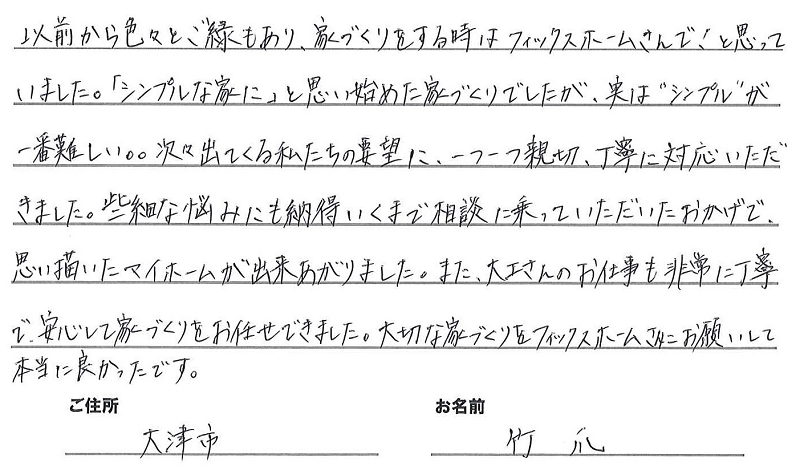 以前から色々とご縁もあり、家づくりをする時はフィックスホームさんで!と思って
いました。「シンプルな家に」と思い始めた家づくりでしたが、実は"シンプル"が
一番難しい。。次々出てくる私たちの要望に、一つ一つ親切、丁寧に対応いただ
きました。些細な悩みにも納得いくまで相談に乗っていただいたおかげで、
思い描いたマイホームが出来あがりました。また、大工さんのお仕事も非常に丁寧
で、安心して家づくりをお任せできました。大切な家づくりをフィックスホームさんにお願いして
本当に良かったです。
ご住所 お名前
大津市 竹爪